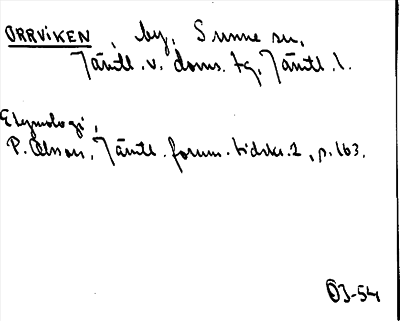 ORRVIKEN, by, Sunne sn,
Jämtl. v. doms. tg, Jämtl. l.
Etymologi,
P. Olsson, Jämtl. fornm. tidskr. 2, p. 163.
ÖJ-54